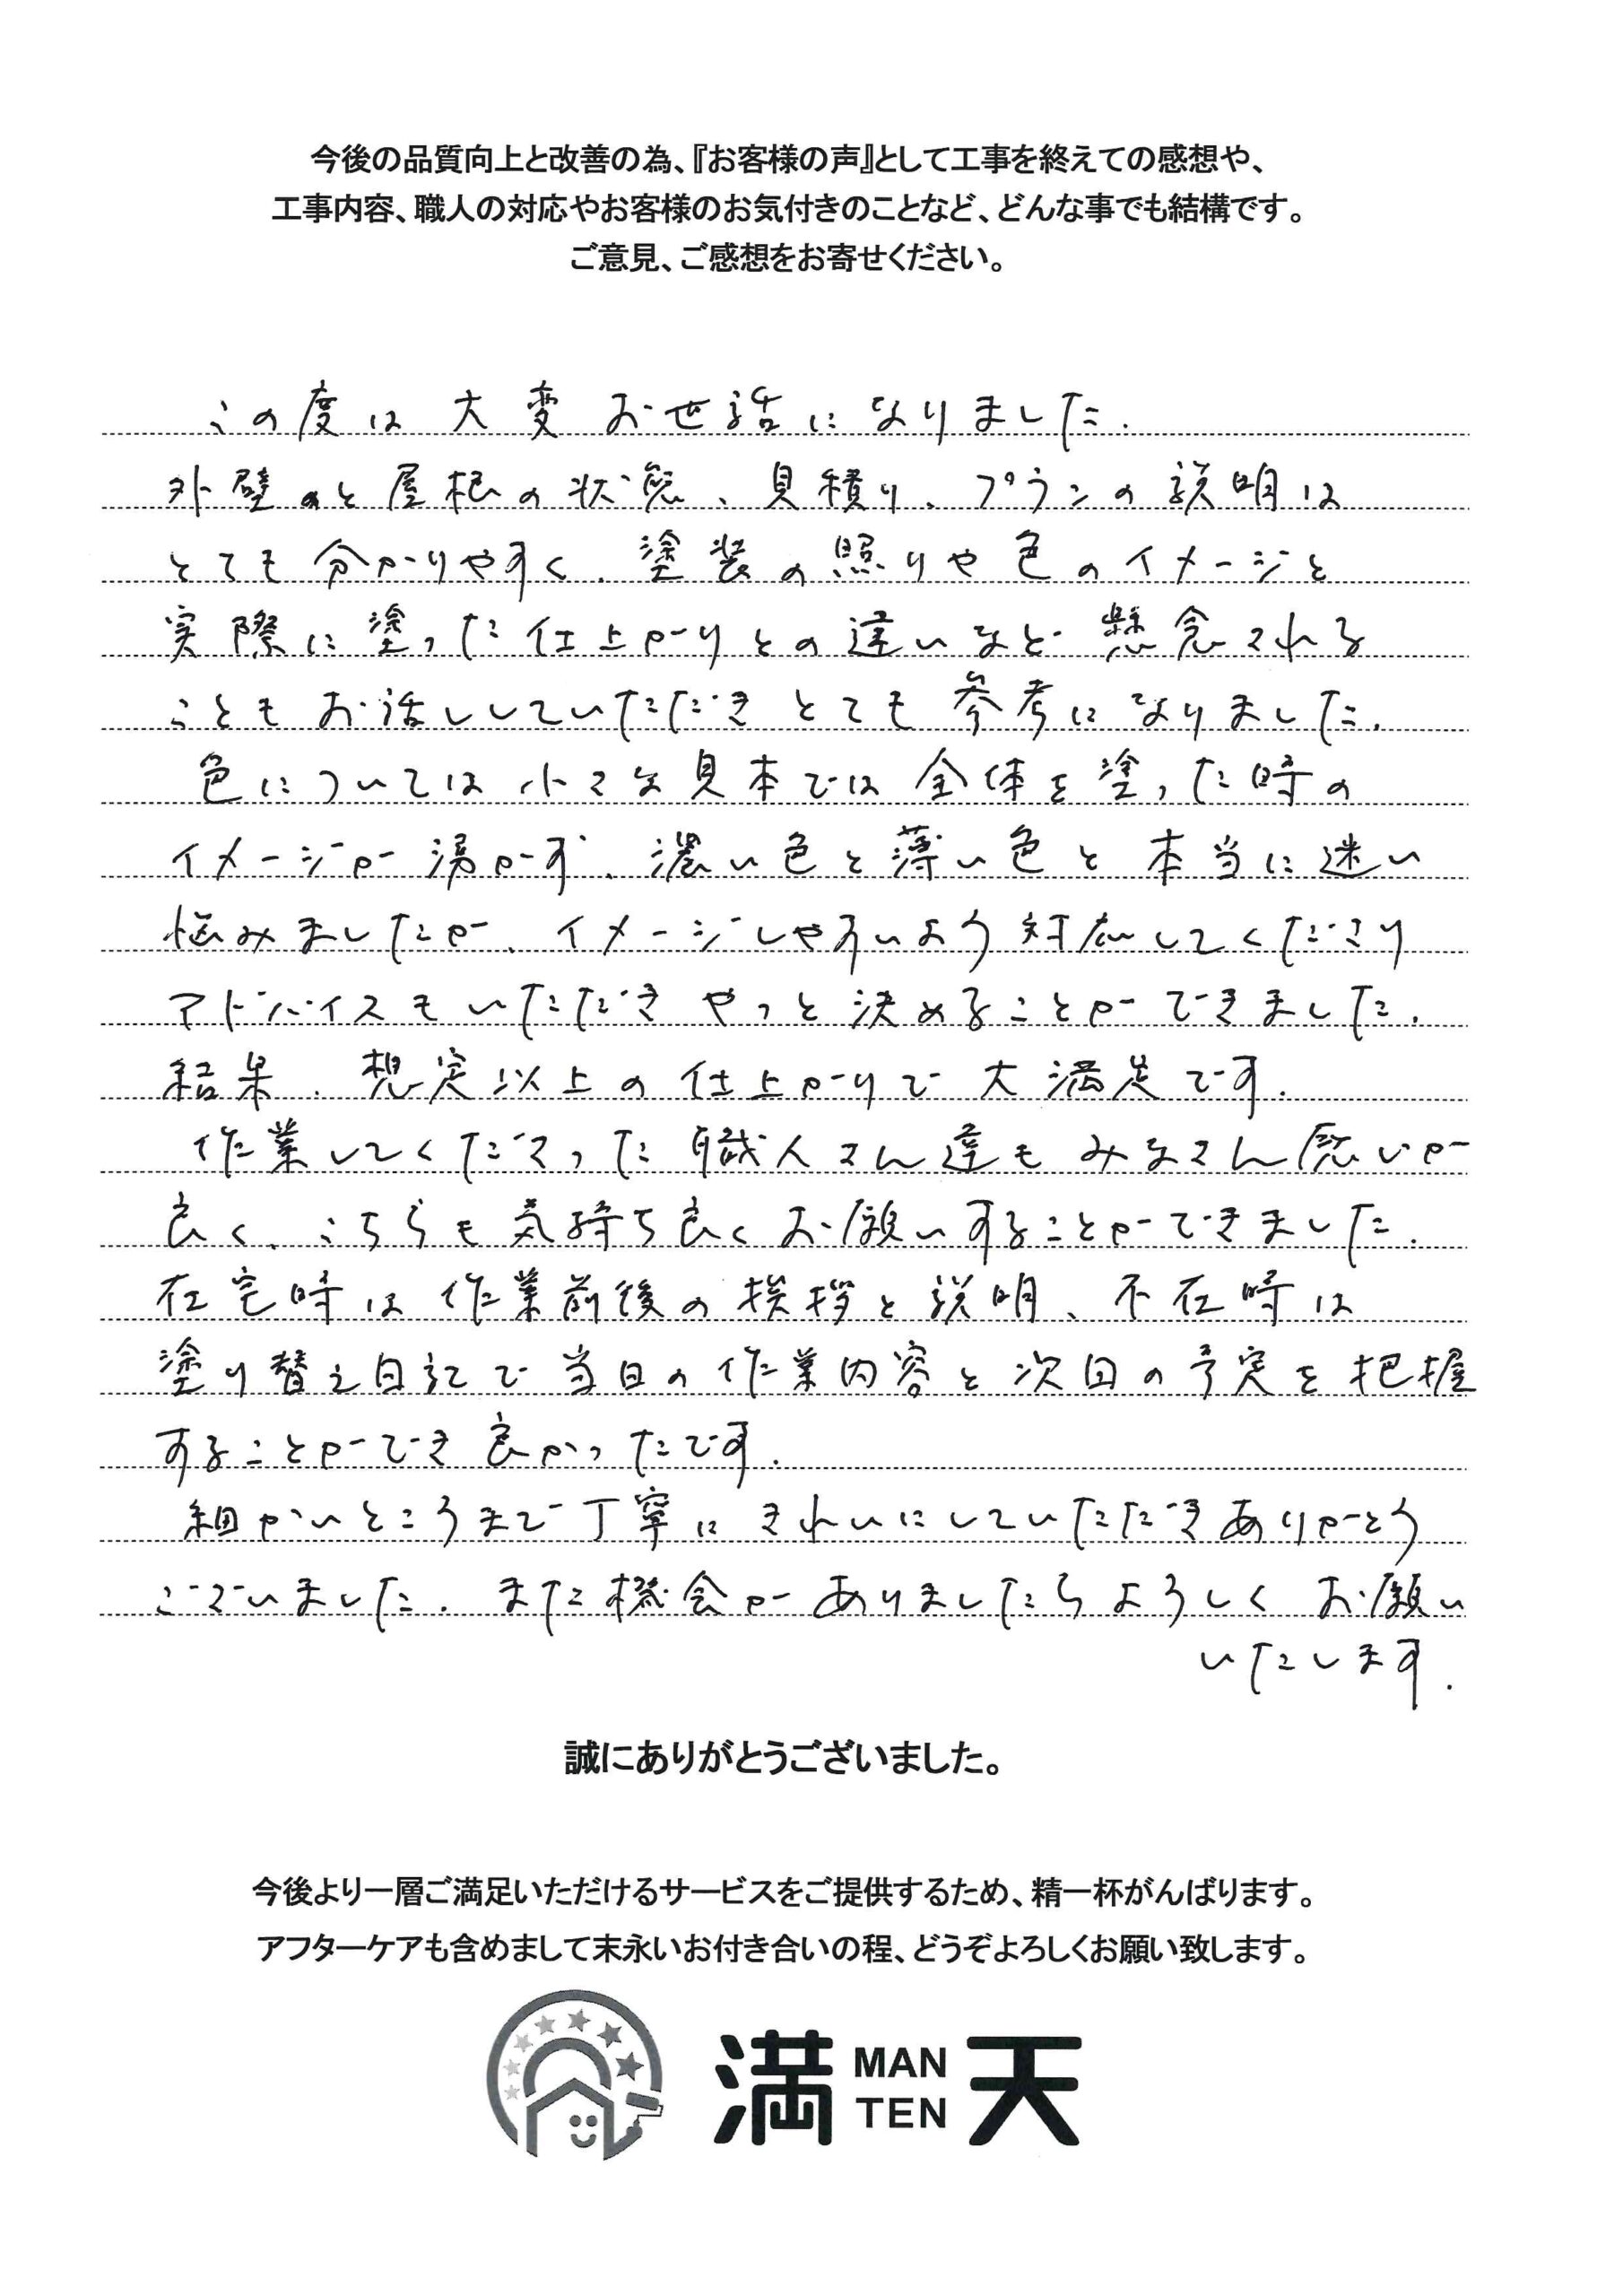 今後の品質向上と改善の為、『お客様の声』として工事を終えての感想や、
工事内容、職人の対応やお客様のお気付きのことなど、どんな事でも結構です。
ご意見、ご感想をお寄せください。
この度は大変お世話になりました.
外壁と屋根の状態、見積り、プランの説明は
とても分かりやすく、塗装の照りや色のイメージと
実際に塗った仕上がりとの違いなど懸念される
こともお話ししていただきとても参考になりました.
色については小さな見本では全体を塗った時の
イメージが湧かず、濃い色と薄い色と本当に迷い
悩みましたが、イメージしやすいよう対応してくださり
アドバイスもいただきやっと決めることができました.
結果、想定以上の仕上がりで大満足です.
作業してくださった職人さん達もみなさん感じが
良く、こちらも気持ち良くお願いすることができました.
在宅時は作業前後の挨拶と説明、不在時は
塗り替え日記で当日の作業内容と次回の予定を把握
することができ良かったです.
細かいところまで丁寧にきれいにしていただきありがとう
ございました. また機会がありましたらよろしくお願い
いたします.
誠にありがとうございました。
今後より一層ご満足いただけるサービスをご提供するため、精一杯がんばります。
アフターケアも含めまして末永いお付き合いの程、どうぞよろしくお願い致します。
満 MAN TEN 天